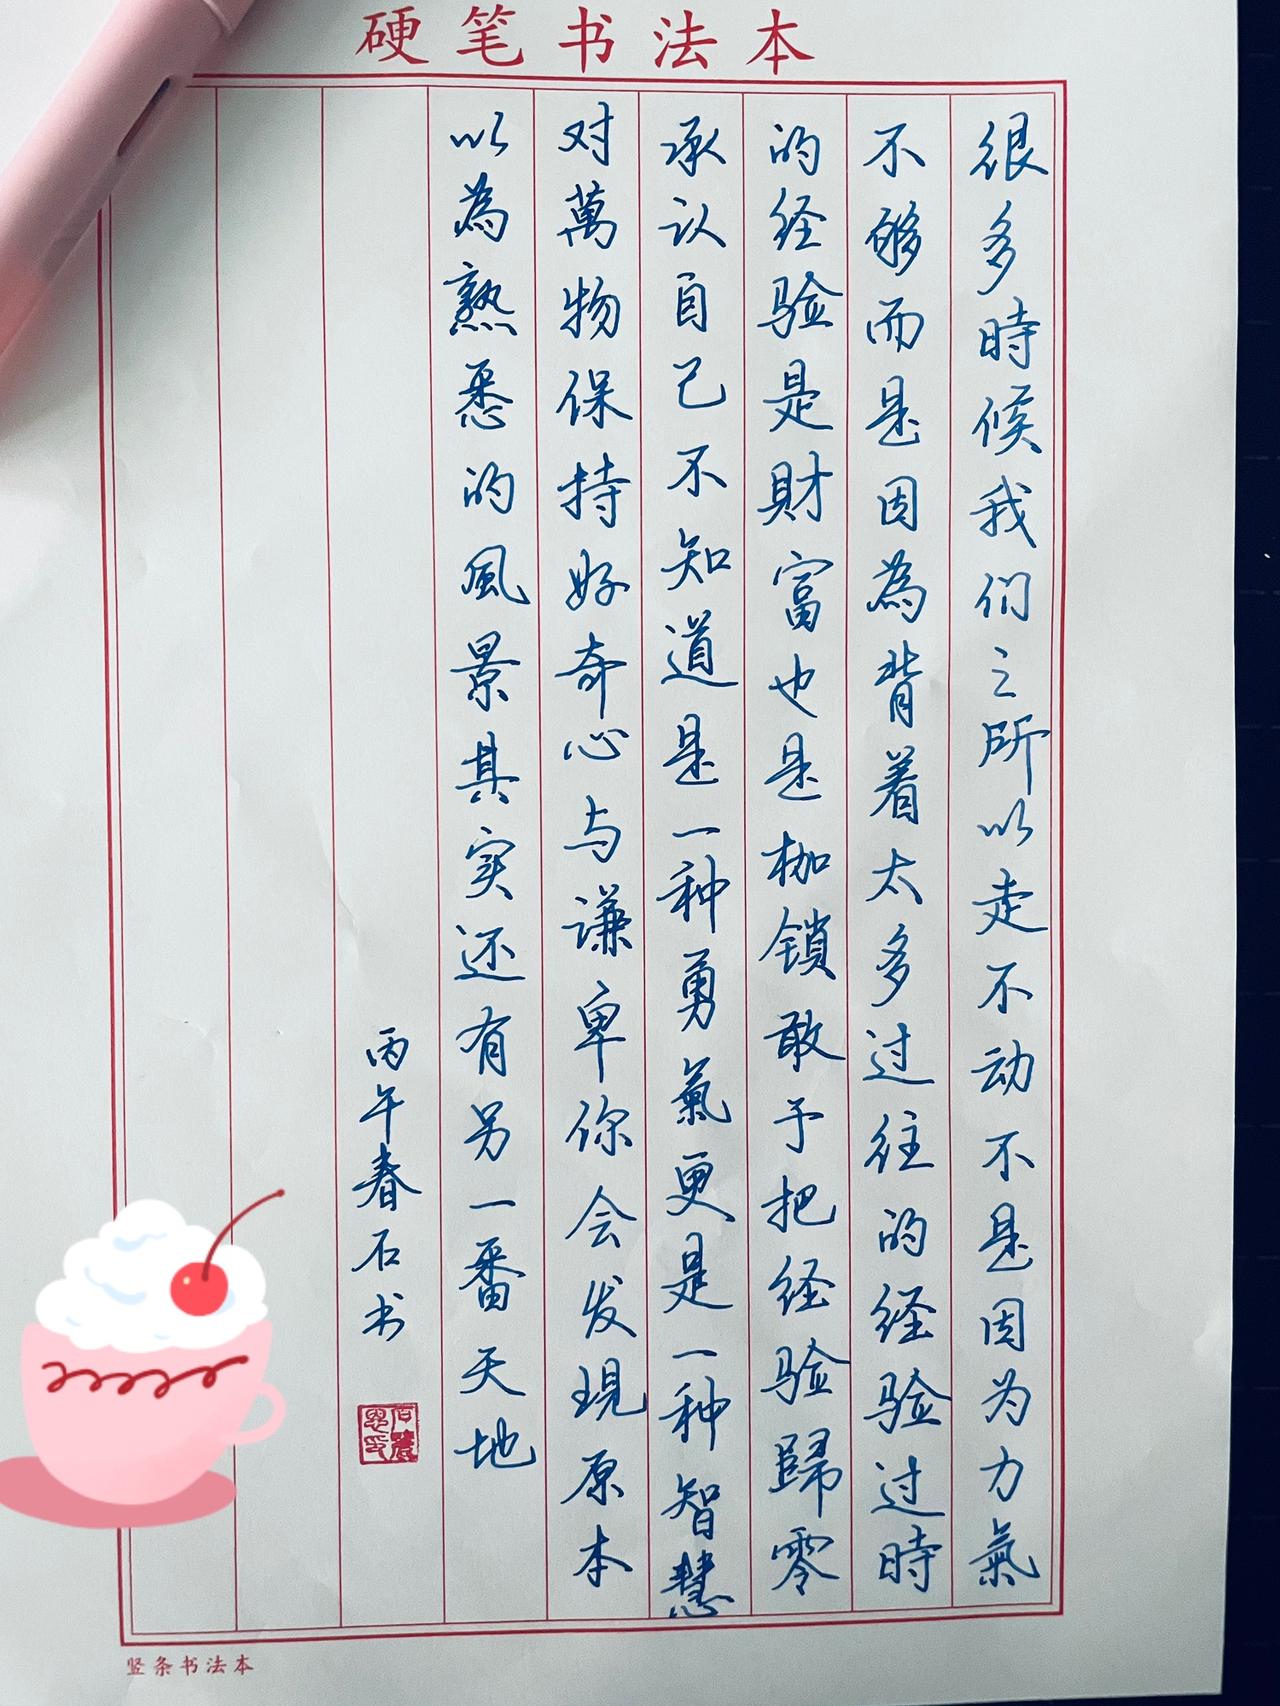 硬笔书法本
很多時候我们之所以走不动不是因为力氣
不够而是因為背着太多过往的经验过時
的经验是財富也是枷锁敢于把经验歸零
承认自己不知道是一种勇氣更是一种智慧
对萬物保持好奇心与谦卑你会发現原本
以為熟悉的風景其实还有另一番天地
丙午春石书
竖条书法本